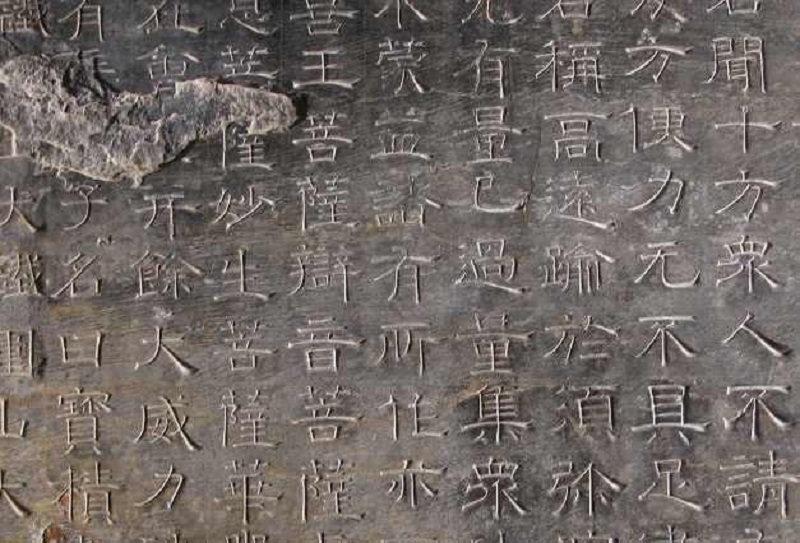 名聞十方衆人不請
方便力无不具足
名稱高遠踰於須弥
无有量已過量集衆
不蒙益諸有所作亦
王菩薩辯音菩薩
菩薩妙生菩薩華
會开餘大威力
有子名曰寶積
大鐵圍山大